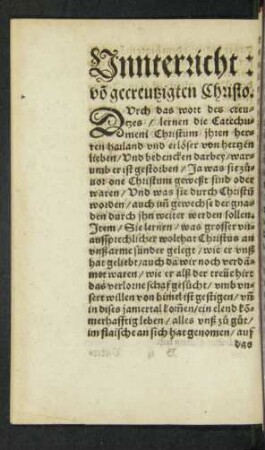 Vnnterricht:
võ gecreutzigten Christo.
DVrch das wort des creu-
tzes / lernen die Catechu-
meni Christum jhren her-
ren hailand vnd erlöser von hertzen
lieben / Vnd bedencken darbey / war-
umb er ist gestorben / Ja was sie zů-
uor one Christum geweßt sind oder
waren / Vnd was sie durch Christũ
worden / auch im̃ gewechse der gna-
den durch jhn weiter werden sollen.
Item / Sie lernen / was grosser vn-
außsprechlicher wolthat Christus an
vnß arme sünder gelegt / wie er vnß
hat geliebt / auch da wir noch verdã-
met waren / wie er alß der trew hirt
das verlorne schaf gesůcht / vmb vn-
sert willen von himel ist gestigen / vñ
in dises jamertal kom̃en / ein elend kõ-
merhafftig leben / alles vnß zů gůt /
im flaische an sich hat genomen / auf
das